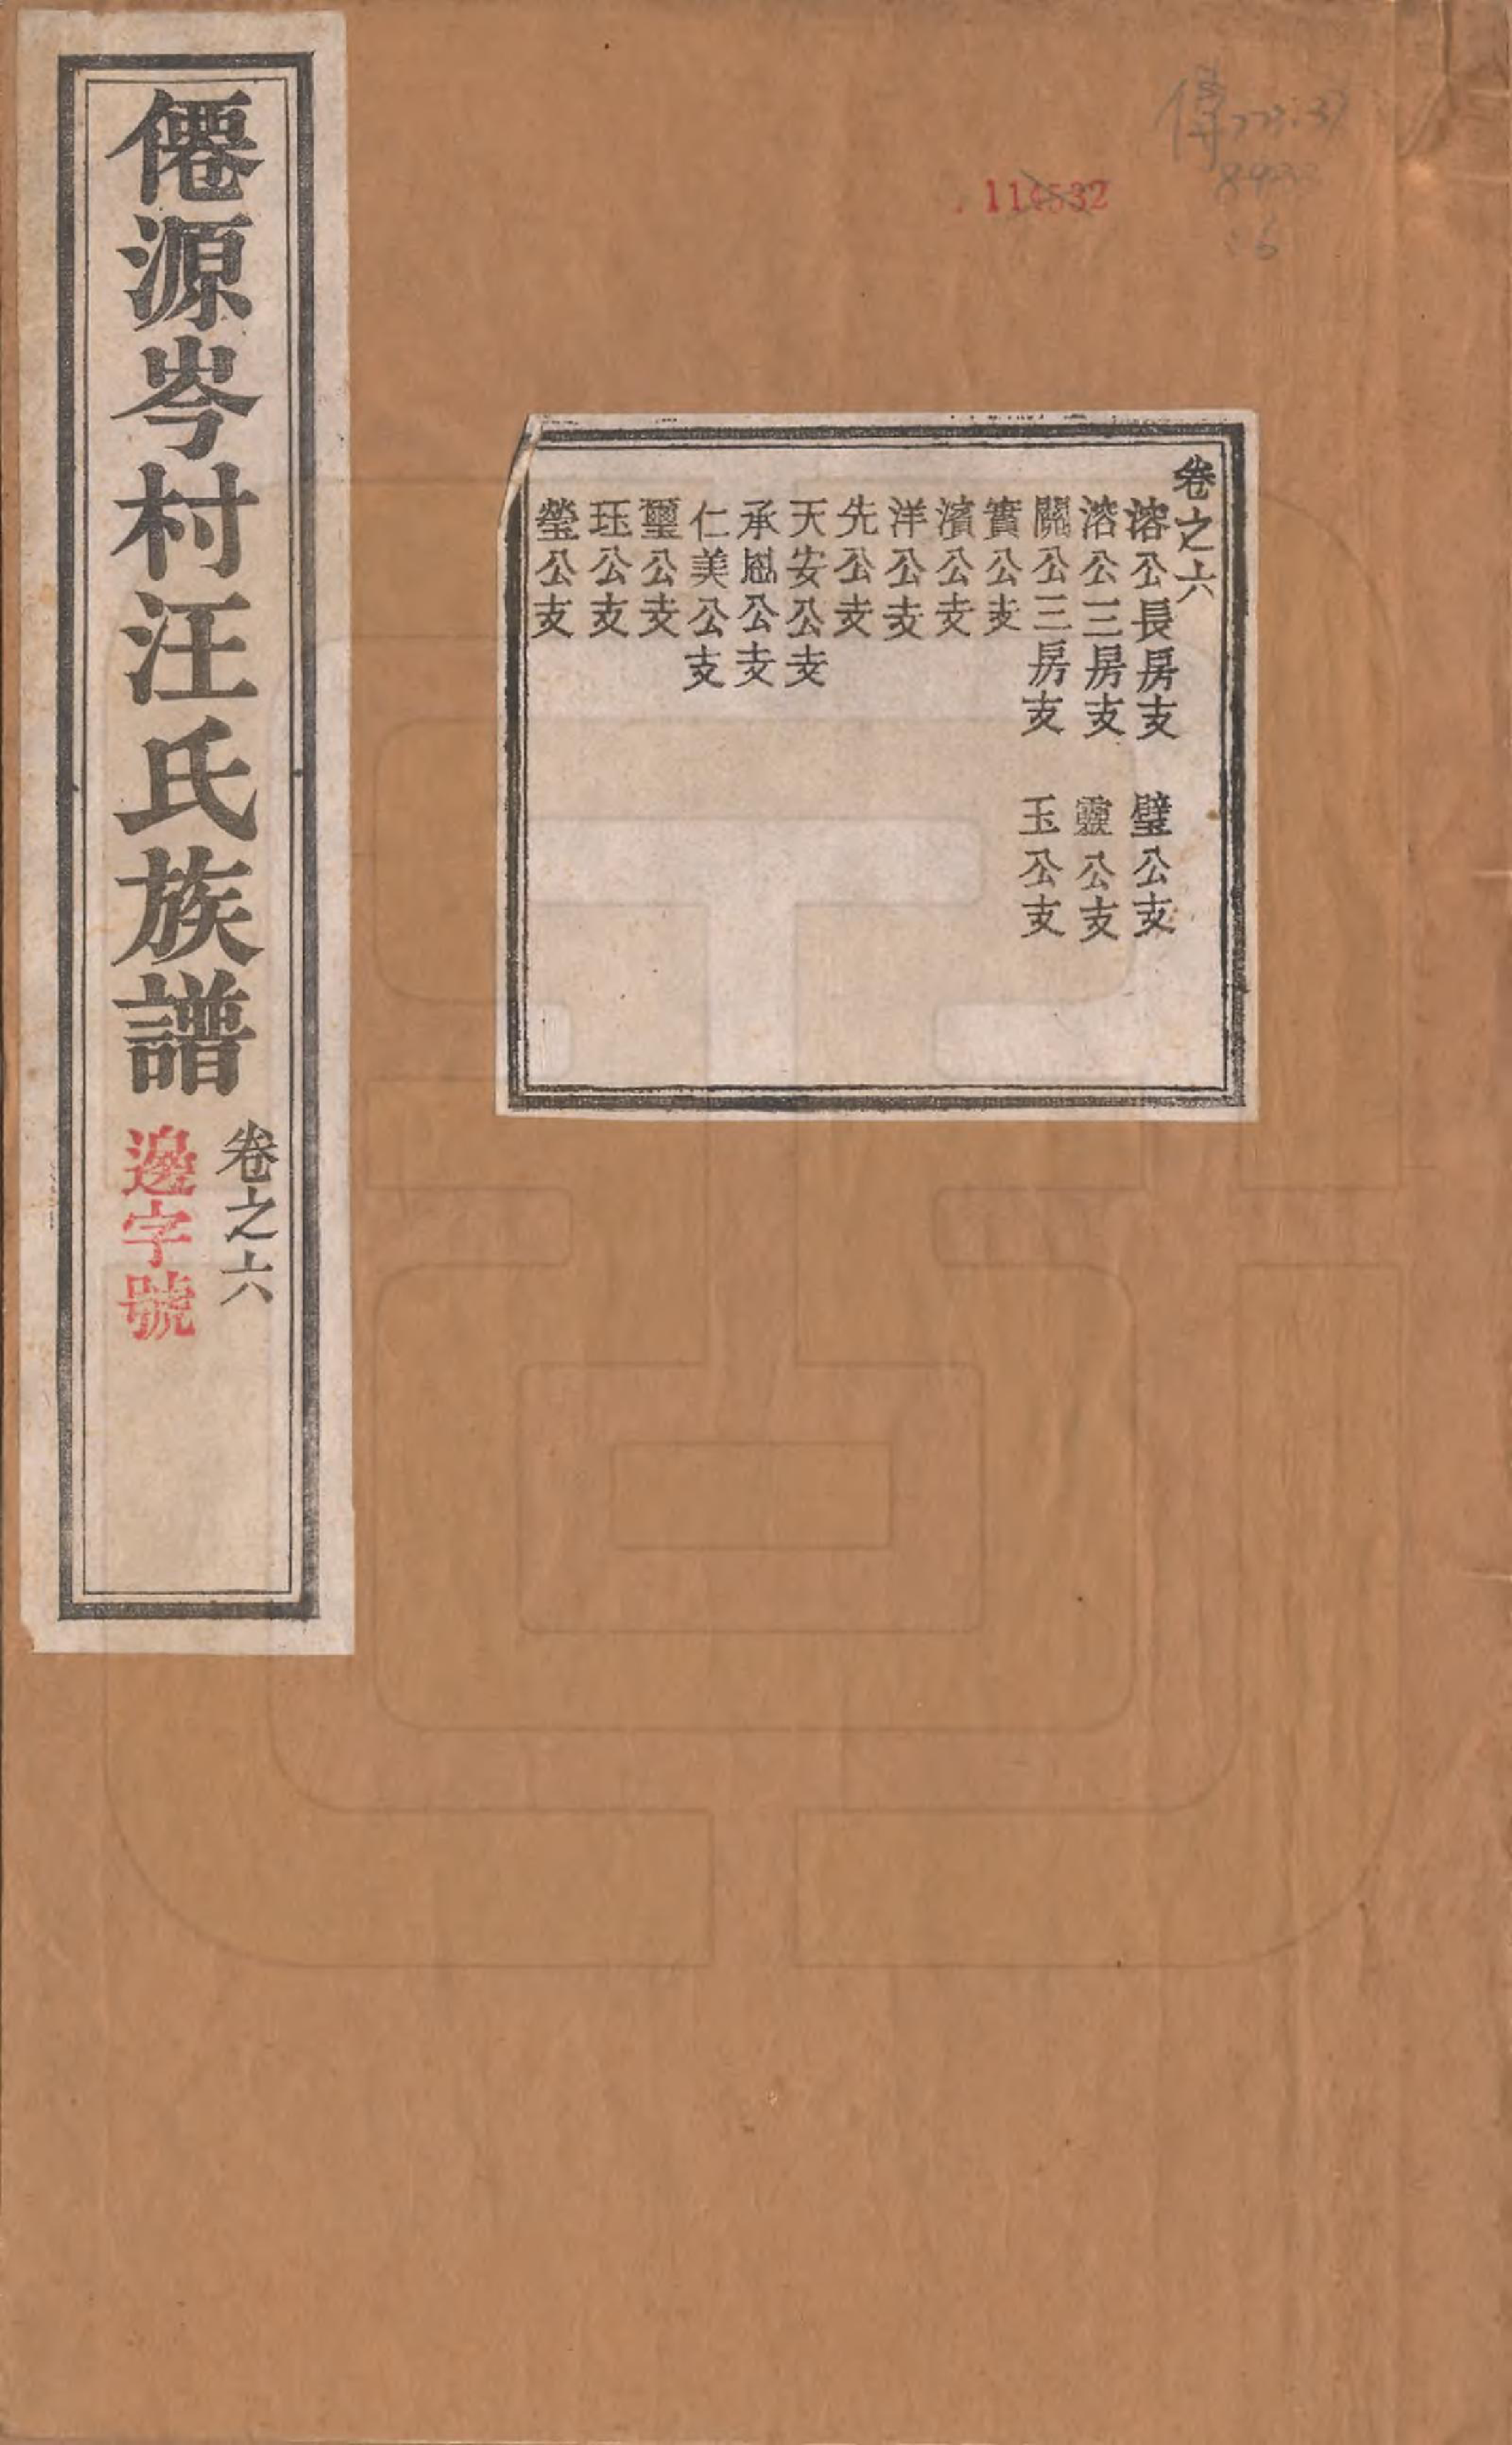 傳
114532
卷之六
溶公長房支 璧公支
溶公三房支 靈公支
關公三房支 玉公支
實公支
濱公支
洋公支
先公支
天安公支
承恩公支
仁美公支
璽公支
珏公支
瑩公支
僊源岑村汪氏族譜
卷之六
邊字號